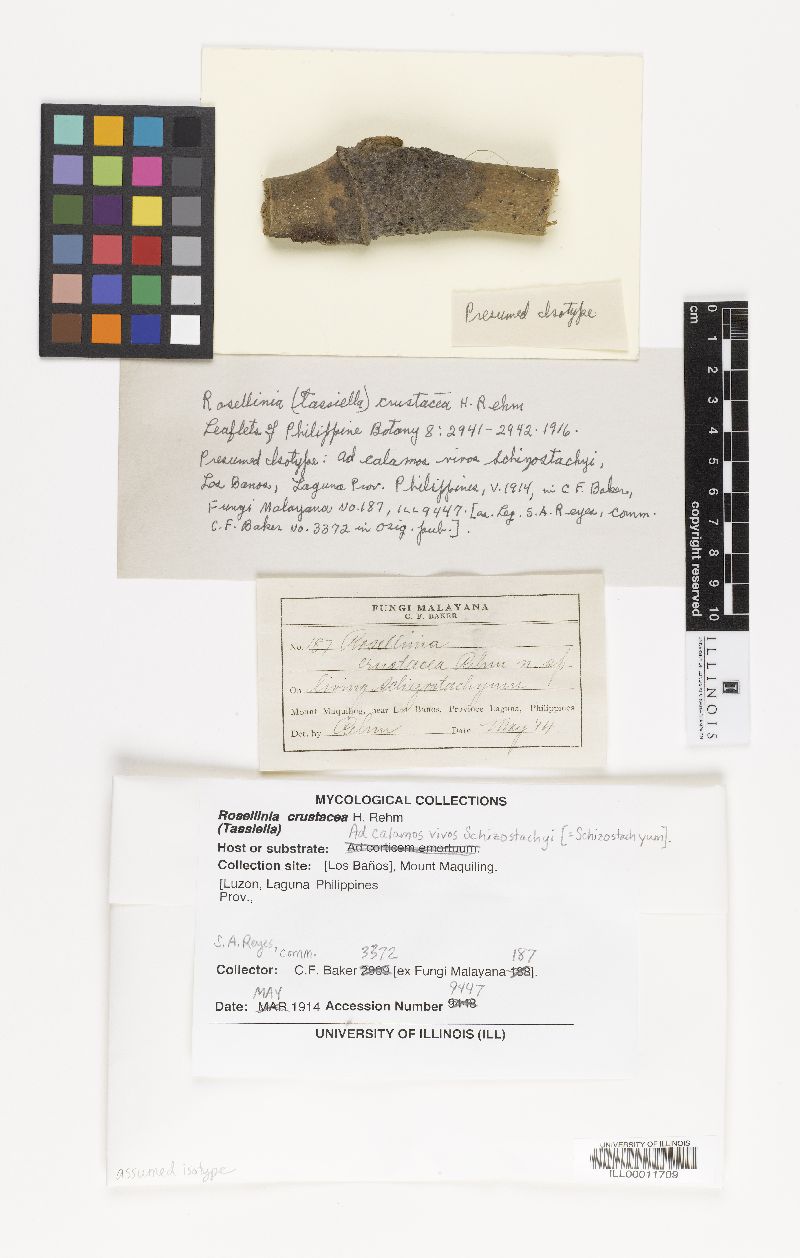 Presumed Isotype
Rosellinia (Tassiella) crustacea H. Rehm
Leaflets of Philippine Botany 8: 2941-2942. 1916.
Presumed Isotype: Ad calamos vivos Schizostachyi,
Los Banos, Laguna Prov. Philippines, V.1914, in C.F. Baker,
Fungi Malayana No. 187, ILL 9447. [as. Leg. S.A. Reyes, comm.
C.F. Baker No. 3372 in orig. pub.].
FUNGI MALAYANA
C. F. BAKER
No. 187 Rosellinia
crustacea Rehm n. sp.
On living Schizostachyum
Mount Maquiling, near Los Banos, Province Laguna, Philippines
Det. by Rehm Date May 14
cm 0 1 2 3 4 5 6 7 8 9 10
copyright reserved
ILLINOIS
MYCOLOGICAL COLLECTIONS
Rosellinia crustacea H. Rehm
(Tassiella)
Ad calamos vivos Schizostachyi [=Schizostachyum].
Host or substrate: Ad corticem emortuum.
Collection site: [Los Baños], Mount Maquiling.
[Luzon, Laguna Philippines
Prov.,
S.A. Reyes, comm. 3372 187
Collector: C.F. Baker [ex Fungi Malayana 188].
MAY 9447
Date: MAR 1914 Accession Number 9448
UNIVERSITY OF ILLINOIS (ILL)
assumed isotype
UNIVERSITY OF ILLINOIS
ILL00011709